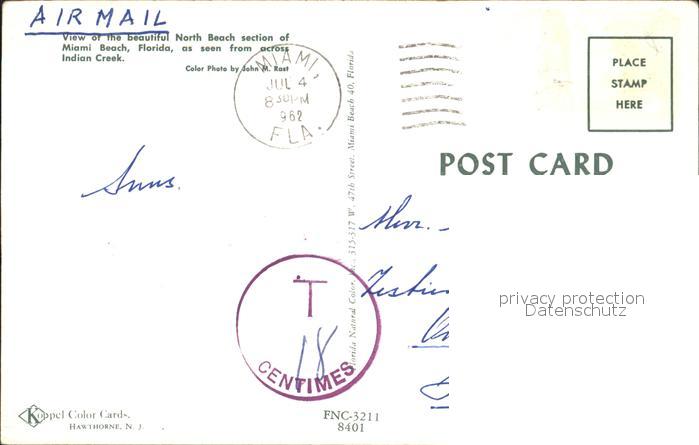 AIR MAIL
View of the beautiful North Beach section of
Miami Beach, Florida, as seen from across
Indian Creek.
Color Photo by John M. Rast
MIAMI,
JUL 4
8 30 PM
962
FLA.
PLACE
STAMP
HERE
POST CARD
Florida Natural Color, Inc., 315-317 W. 47th Street, Miami Beach 40, Florida
T
18
CENTIMES
privacy protection
Datenschutz
Koppel Color Cards.
HAWTHORNE, N. J.
FNC-3211
8401